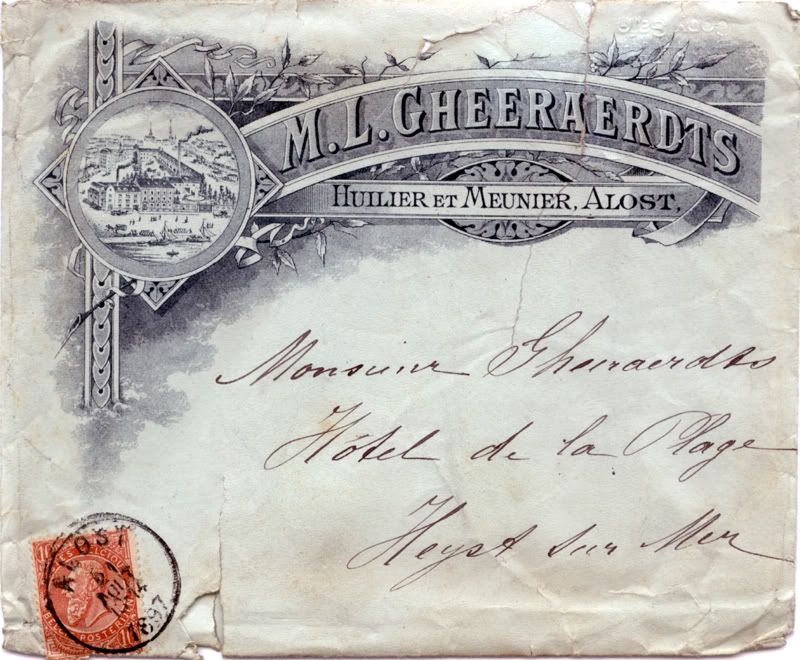 M. L. GHEERAERDTS
HUILIER ET MEUNIER, ALOST.
Monsieur Gheeraerdts
Hôtel de la Plage
Heyst sur Mer
ALOST
1897
10
10